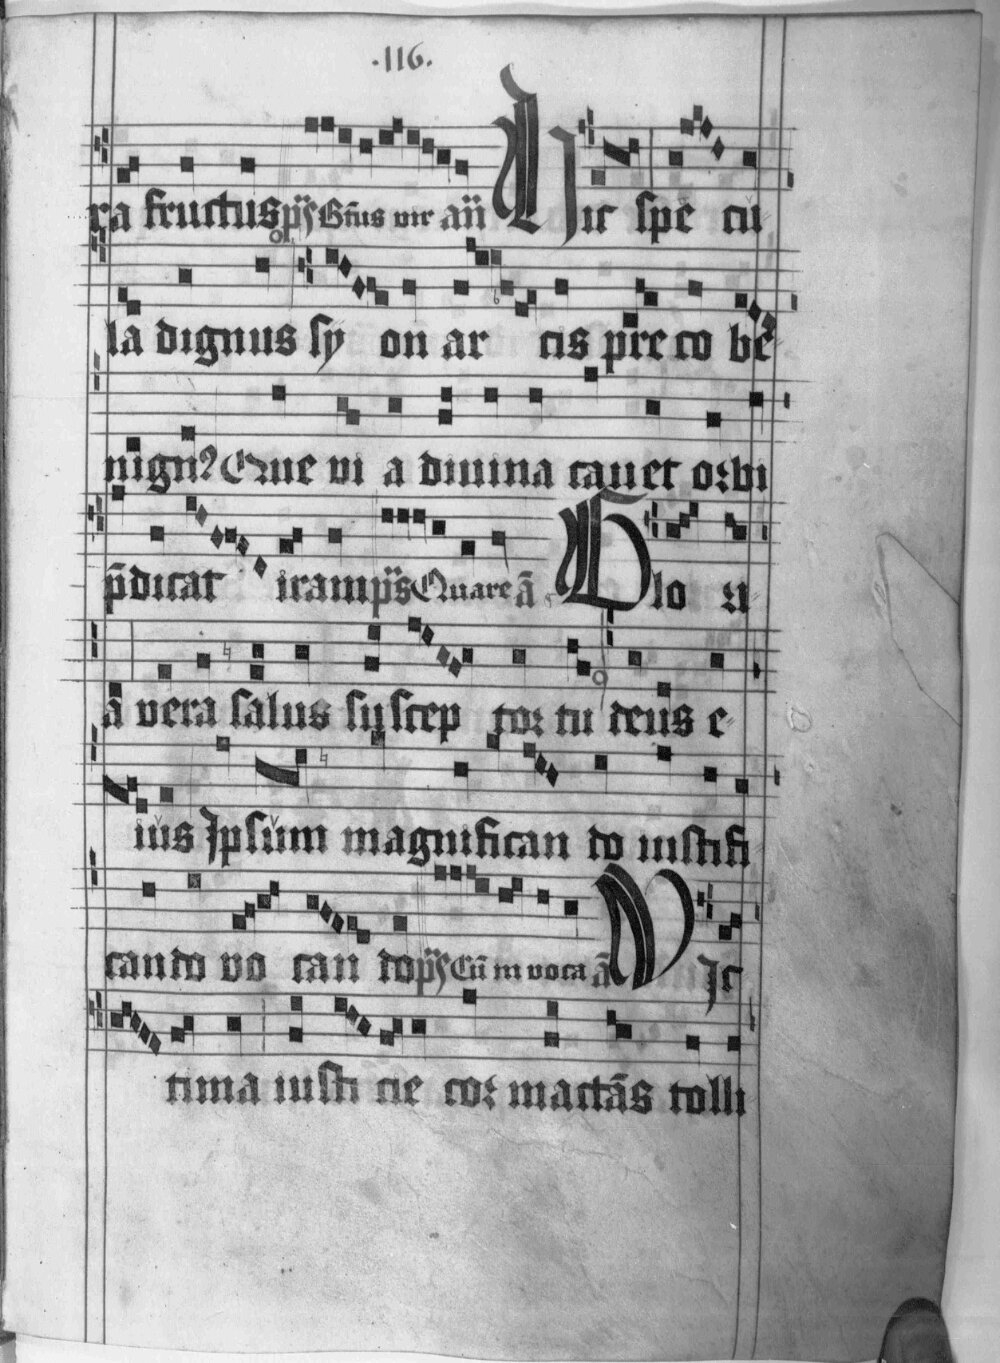 .116.
ra fructus ps Btus vir an Hic spe cu
la dignus sy on ar cis preco be
nign9 Que vi a divina cavet orbi
pdicat iram ps Quare a Glo ri
a vera salus suscep tor tu deus e
ius Ipsum magnifican do iustifi
cando vo can do ps Cu invoca a Vic
tima iusti cie cor mactas tolli